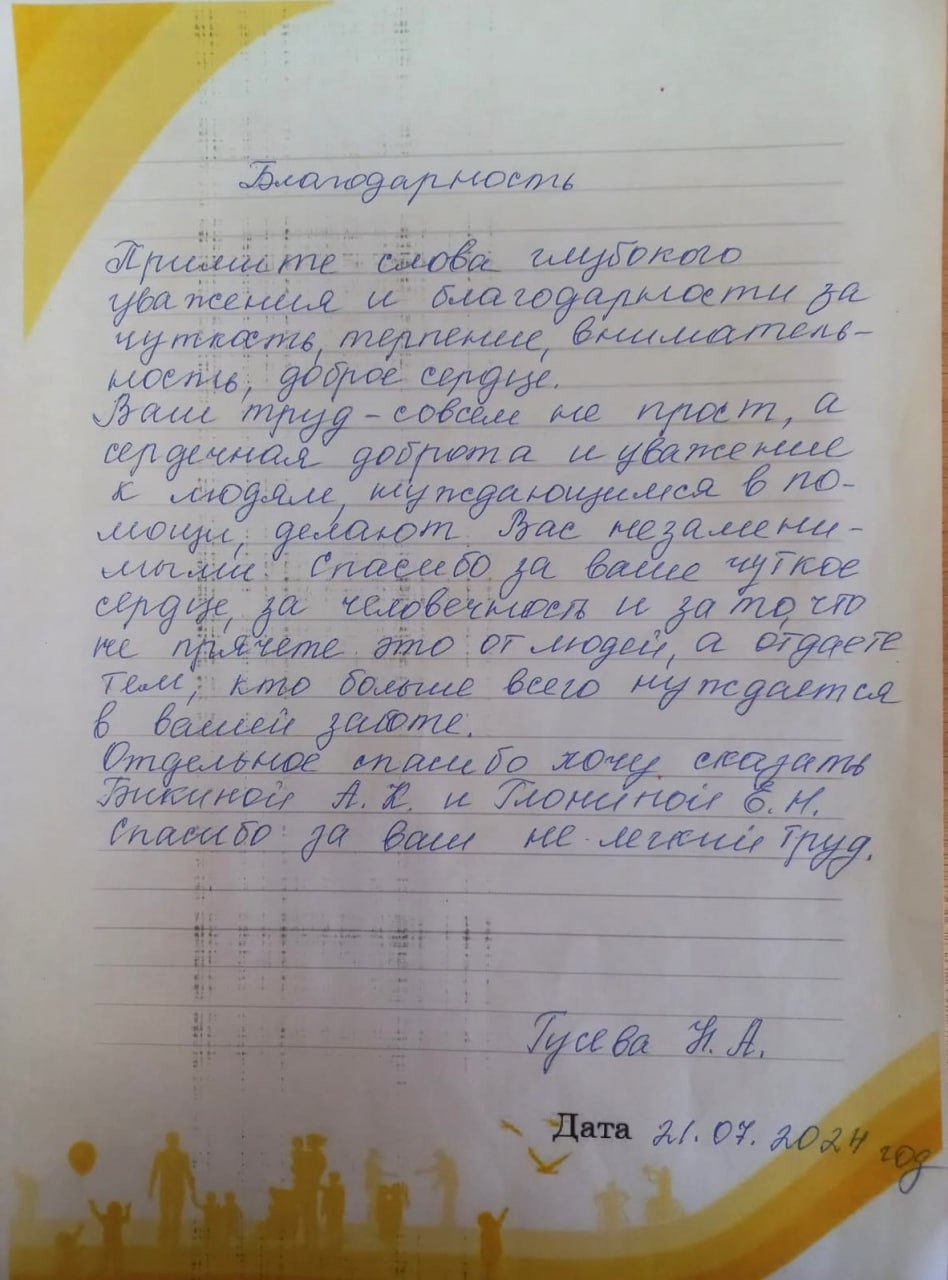 Благодарность
Примите слова глубокого
уважения и благодарности за
чуткость, терпение, вниматель-
ность, доброе сердце.
Ваш труд - совсем не прост, а
сердечная доброта и уважение
к людям, нуждающимся в по-
мощи, делают Вас незамени-
мыми. Спасибо за ваше чуткое
сердце, за человечность и за то, что
не прячете это от людей, а отдаете
тем, кто больше всего нуждается
в вашей заботе.
Отдельное спасибо хочу сказать
Бикиной А. К. и Е. Н.
Спасибо за ваш не легкий труд.
Гусева Н. А.
Дата 21.07.2024 год